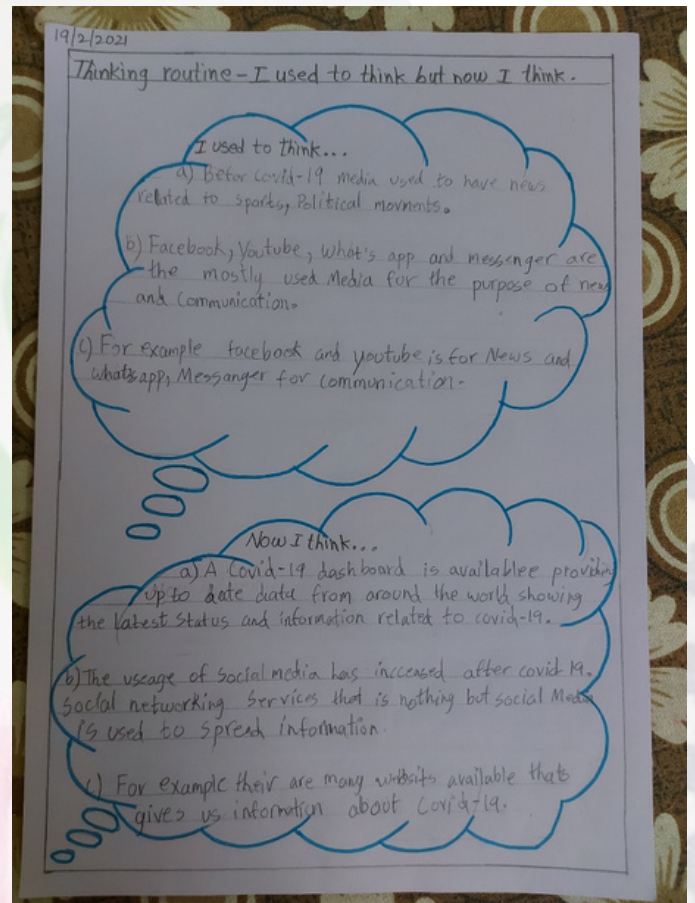 19/2/2021
Thinking routine - I used to think but now I think.
I used to think...
a) Befor covid-19 media used to have news
related to sports, Political movments.
b) Facebook, Youtube, What's app and messenger are
the mostly used Media for the purpose of new
and Communication.
c) For example facebook and youtube is for News and
whats app, Messanger for communication.
Now I think...
a) A Covid-19 dashboard is availablee providing
up to date data from around the world showing
the latest status and information related to covid-19.
b) The useage of Social media has incceased after covid 19.
Social networking Services that is nothing but social Media
is used to spread information.
c) For example their are many websits available thats
gives us information about Covid-19.